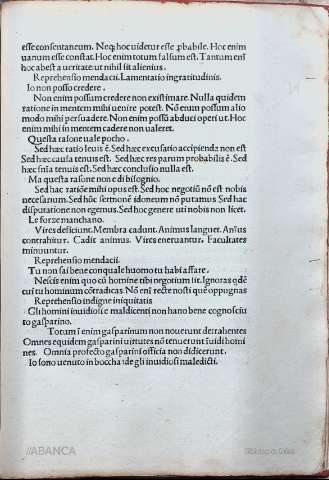 esse consentaneum. Neq; hoc uidetur esse ꝓbabile. Hoc enim
uanum esse constat. Hoc enim totum falsum est. Tantum eni͂
hoc abest a ueritate: ut nihil sit alienius.
Reprehensio mendacii. Lamentatio ingratitudinis.
Io non posso credere.
Non enim possum credere non existimare. Nulla quidem
ratione in mentem mihi uenire potest. Nō enim possum alio
modo mihi persuadere. Non enim possū abduci operi ut. Hoc
enim mihi in mentem cadere non ualeret.
Questa rasone uale pocho.
Sed hæc ratio leuis ē. Sed hæc excusatio accipienda non est
Sed hæc causa tenuis est. Sed hæc res parum probabilis ē.
Sed hæc snīa tenuis est. Sed hæc conclusio nulla est.
Ma questa rasone non e di bisogno.
Sed hac ratiōe mihi opus est. Sed hoc negotiū nō est nobis
necesarium. Sed hūc sermonē idoneum nō putamus Sed hac
disputatione non egemus. Sed hoc genere uti nobis non licet.
Le forze manchano.
Vires deficiunt. Membra cadunt. Animus languet. Anius
contrahitur. Cadit animus. Vires eneruantur. Facultates
minuuntur.
Reprehensio mendacii.
Tu non sai bene con quale huomo tu habi affare.
Nescis enim quo cū homine tibi negotium sit. Ignoras qdē
cui tu hominum cōtradicas. Nō eni recte nosti quē oppugnas
Reprehensio indigne iniquitatis
Gli homini inuidiosi e maldicenti non hano bene cognosciu
to gasparino.
Totum si enim gasparinum non nouerunt detrahentes
Omnes equidem gasparini uirtutes nō tenuerunt iuidi homi
nes. Omnia profecto gasparini officia non didicerunt.
Io sono uenuto in boccha de gli inuidiosi maledicti.
ABANCA
Biblioteca de Galicia